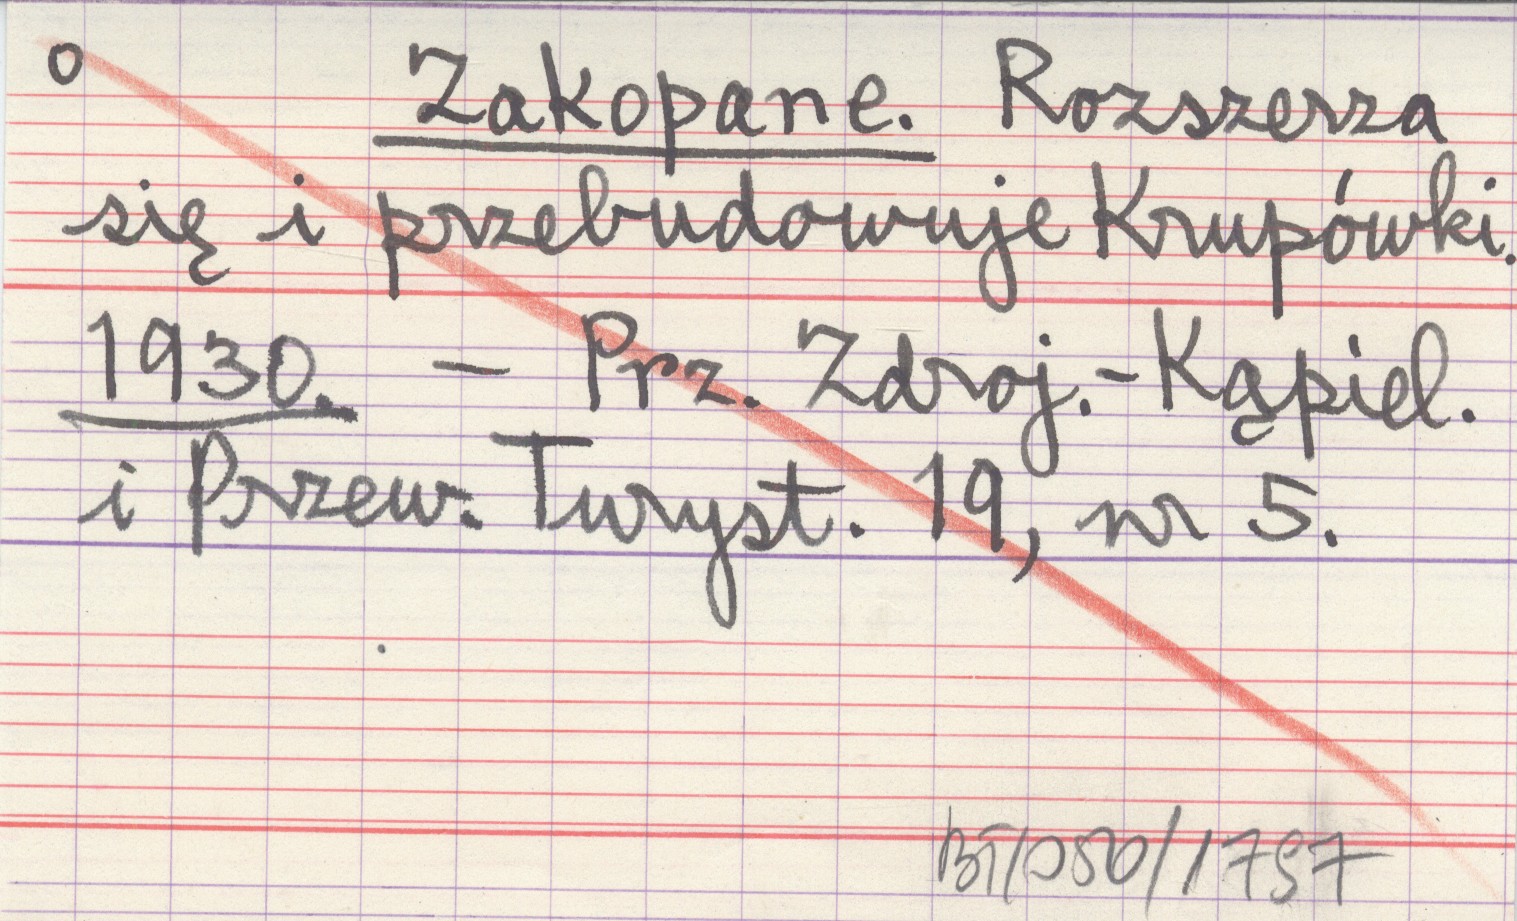 o Zakopane. Rozszerza
się i przebudowuje Krupówki.
1930. – Prz. Zdroj.-Kąpiel.
i Przew. Turyst. 19, nr 5.